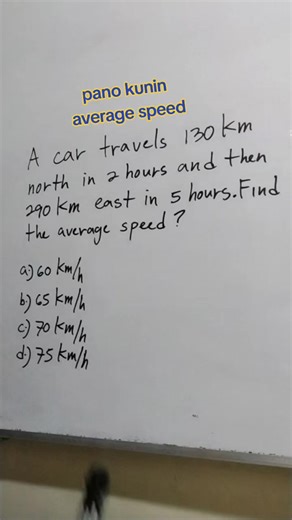 pano kunin
average speed
A car travels 130 km
north in 2 hours and then
290 km east in 5 hours. Find
the average speed?
a.) 60 km/h
b.) 65 km/h
c.) 70 km/h
d.) 75 km/h